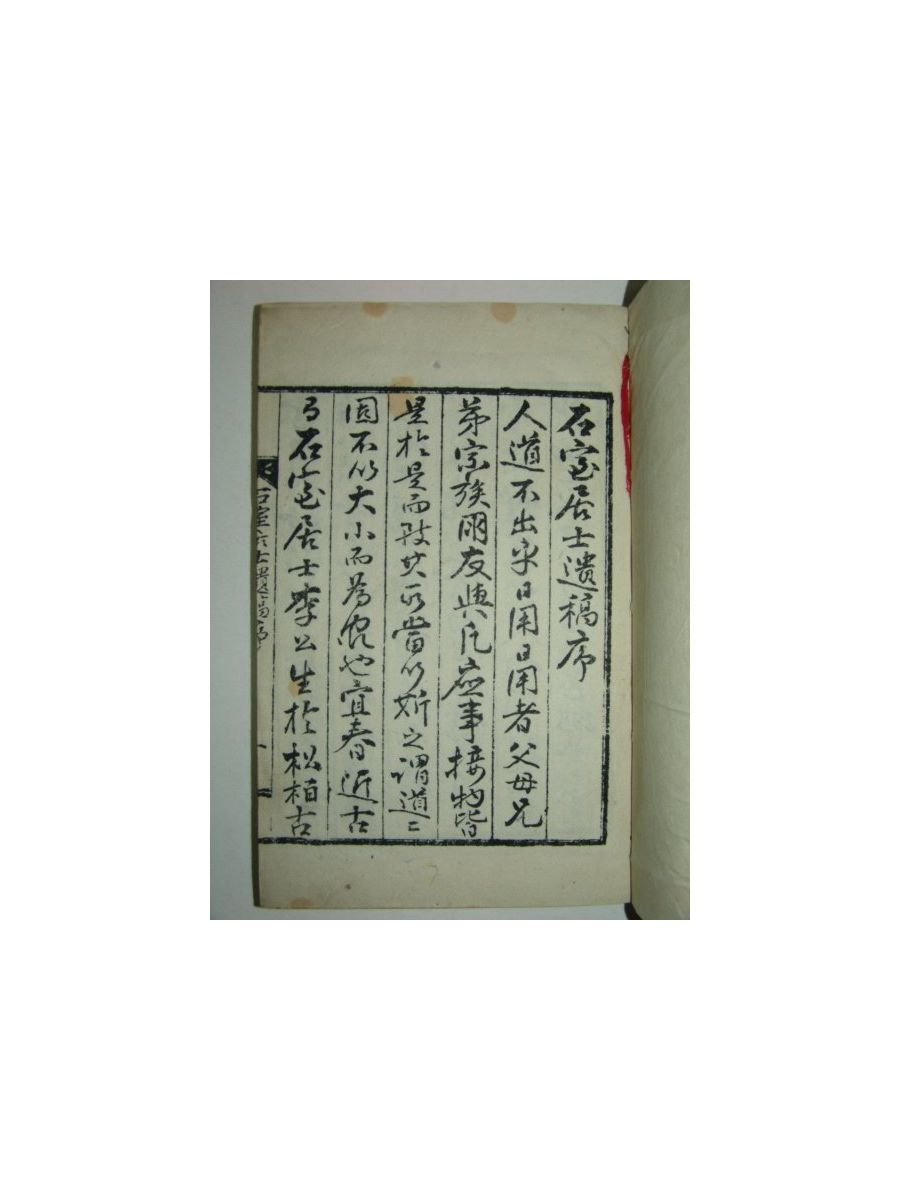 石室居士遺稿序
人道不出乎日用日用者父母兄
弟宗族朋友與凡應事接物皆
是於是而致其所當以斯之謂道二
固不以大小而為也宜春近古
有石室居士李公生於松柏古
石室居士遺稿序
一